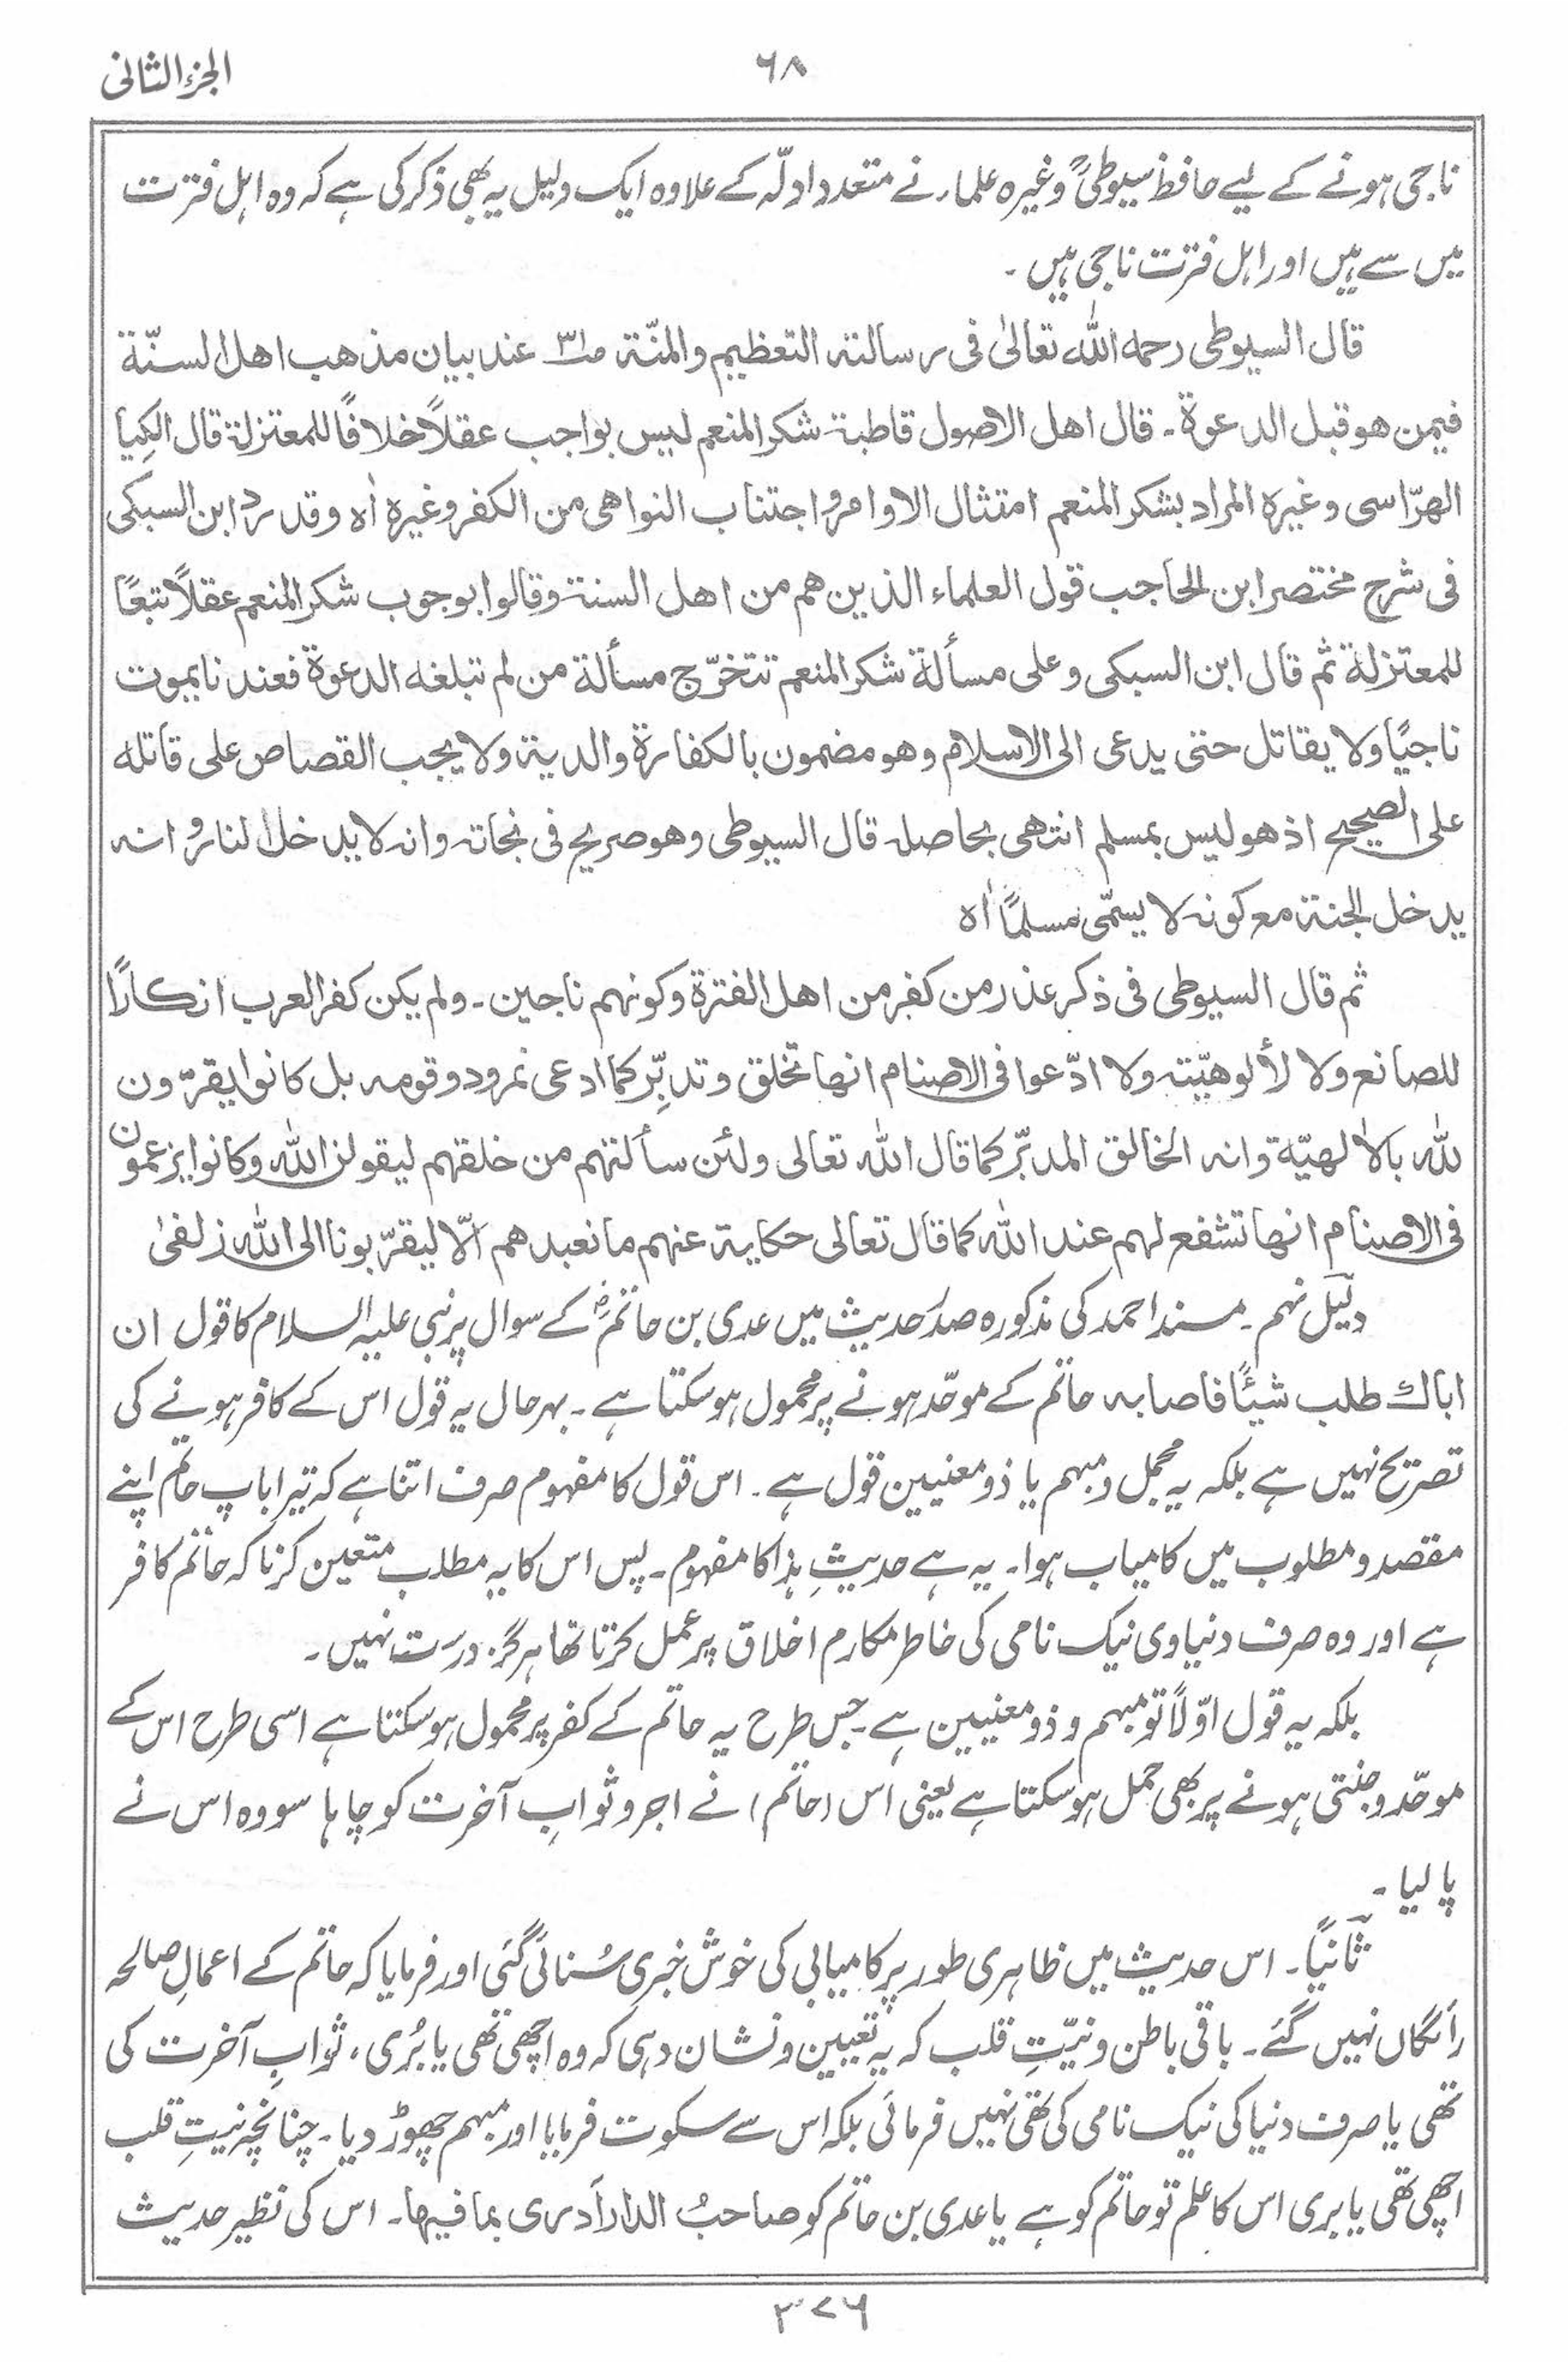 الجزء الثانی
۶۸
ناجی ہونے کے لیے حافظ سیوطیؒ وغیرہ علماء نے متعدد ادلّہ کے علاوہ ایک دلیل یہ بھی ذکر کی ہے کہ وہ اہل فترت
میں سے ہیں اور اہل فترت ناجی ہیں ۔
قال السیوطی رحمه الله تعالیٰ فی رسالته التعظیم والمنّة ص۳۱ عند بیان مذهب اهل السنّة
فیمن هو قبل الدعوة ۔ قال اهل الاصول قاطبة شکر المنعم لیس بواجب عقلاً خلافًا للمعتزلة قال الکِیا
الهرّاسی وغیره المراد بشکر المنعم امتثال الاوامر واجتناب النواهی من الکفر وغیره اٰه وقد رد ابن السبکی
فی شرح مختصر ابن الحاجب قول العلماء الذین هم من اهل السنة وقالوا بوجوب شکر المنعم عقلاً تبعًا
للمعتزلة ثم قال ابن السبکی وعلی مسألة شکر المنعم تتخرّج مسألة من لم تبلغه الدعوة فعندنا یموت
ناجیًا ولا یقاتل حتی یدعی الی الاسلام وهو مضمون بالکفارة والدیة ولا یجب القصاص علی قاتله
علی الصحیح اذ هو لیس بمسلم انتهی بحاصله قال السیوطی وهو صریح فی نجاته وانه لا یدخل النار وانه
یدخل الجنة مع کونه لا یسمّی مسلمًا اٰه
ثم قال السیوطی فی ذکر عذر من کفر من اهل الفترة وکونهم ناجین ۔ ولم یکن کفر العرب انکارًا
للصانع ولا لألوهیّته ولا ادّعوا فی الاصنام انها تخلق وتدبِّر کما ادعی نمرود وقومه بل کانوا یقرّون
لله بالالٰهیّة وانه الخالق المدبّر کما قال الله تعالی ولئن سألتهم من خلقهم لیقولن الله وکانوا یزعمون
فی الاصنام انها تشفع لهم عند الله کما قال تعالی حکایة عنهم ما نعبدهم الّا لیقرّبونا الی الله زلفیٰ
دلیل نہم ۔ مسند احمد کی مذکورہ صدر حدیث میں عدی بن حاتمؓ کے سوال پر نبی علیہ السلام کا قول ان
اباك طلب شیئًا فاصابه حاتم کے موحّد ہونے پر محمول ہو سکتا ہے ۔ بہرحال یہ قول اس کے کافر ہونے کی
تصریح نہیں ہے بلکہ یہ مجمل و مبہم یا ذو معنیین قول ہے ۔ اس قول کا مفہوم صرف اتنا ہے کہ تیرا باپ حاتم اپنے
مقصد و مطلوب میں کامیاب ہوا ۔ یہ ہے حدیثِ ہذا کا مفہوم ۔ پس اس کا یہ مطلب متعین کرنا کہ حاتم کافر
ہے اور وہ صرف دنیاوی نیک نامی کی خاطر مکارم اخلاق پر عمل کرتا تھا ہرگز درست نہیں ۔
بلکہ یہ قول اوّلاً تو مبہم و ذو معنیین ہے ۔ جس طرح یہ حاتم کے کفر پر محمول ہو سکتا ہے اسی طرح اس کے
موحّد و جنتی ہونے پر بھی حمل ہو سکتا ہے یعنی اس (حاتم) نے اجر و ثوابِ آخرت کو چاہا سو وہ اس نے
پا لیا ۔
ثانیًا ۔ اس حدیث میں ظاہری طور پر کامیابی کی خوش خبری سُنائی گئی اور فرمایا کہ حاتم کے اعمالِ صالحہ
رائگاں نہیں گئے ۔ باقی باطن و نیّتِ قلب کہ یہ تعیین و نشان دہی کہ وہ اچھی تھی یا بُری ، ثوابِ آخرت کی
تھی یا صرف دنیا کی نیک نامی کی تھی نہیں فرمائی بلکہ اس سے سکوت فرمایا اور مبہم چھوڑ دیا ۔ چنانچہ نیتِ قلب
اچھی تھی یا بری اس کا علم تو حاتم کو ہے یا عدی بن حاتم کو صاحبُ الدار أدری بما فیها ۔ اس کی نظیر حدیث